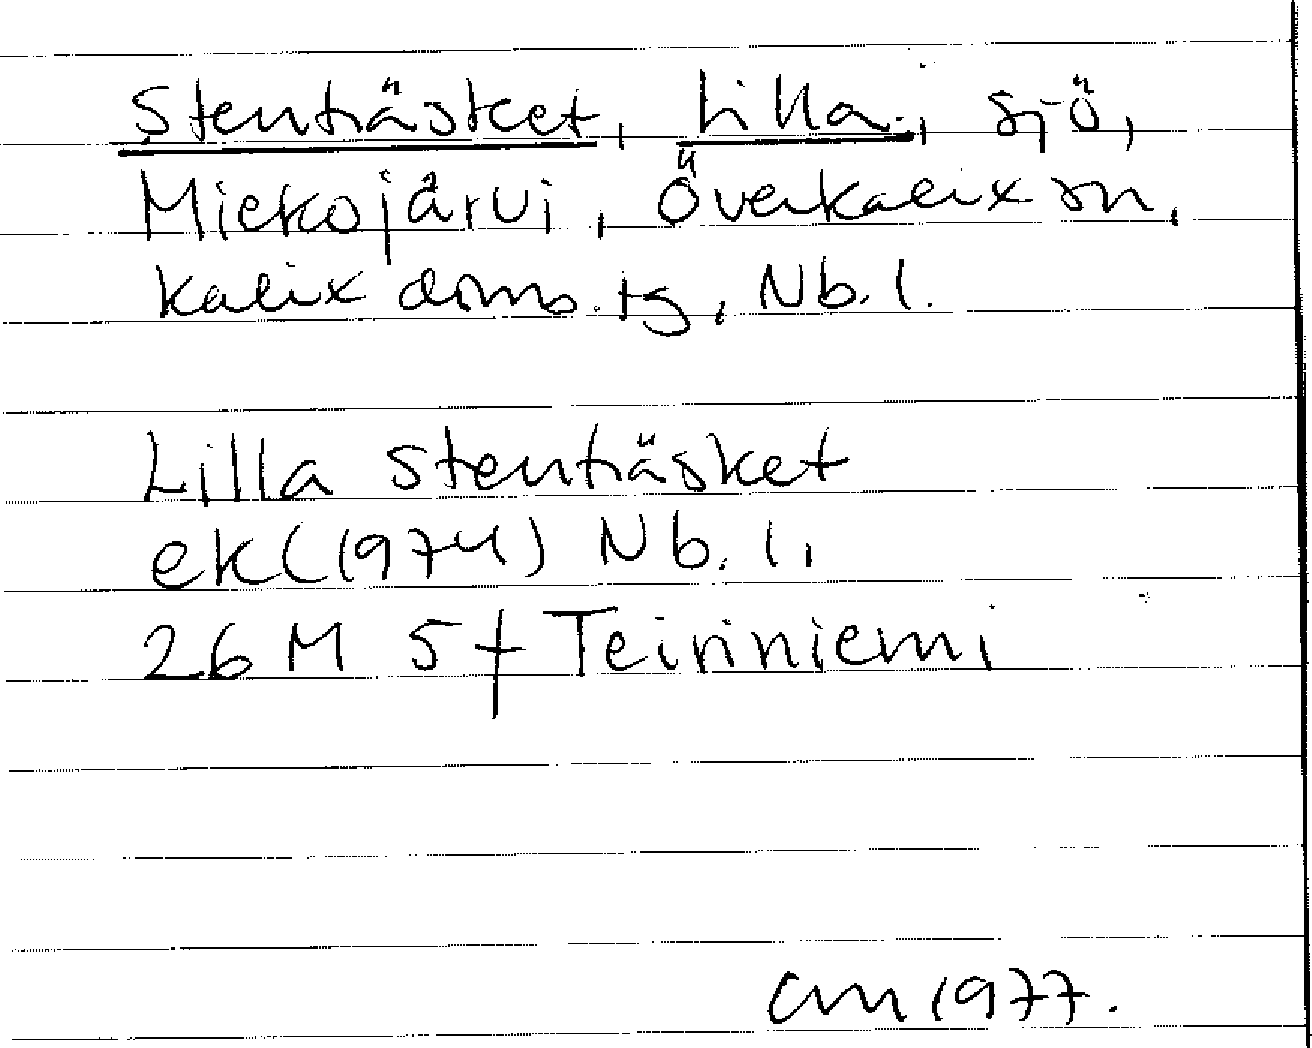 Stenträsket, Lilla, sjö,
Miekojärvi, Överkalix sn,
Kalix doms.tg, Nb.l.
Lilla Stenträsket
ek (1974) Nb.l,
26 M 5 f Teiriniemi
CM 1977.